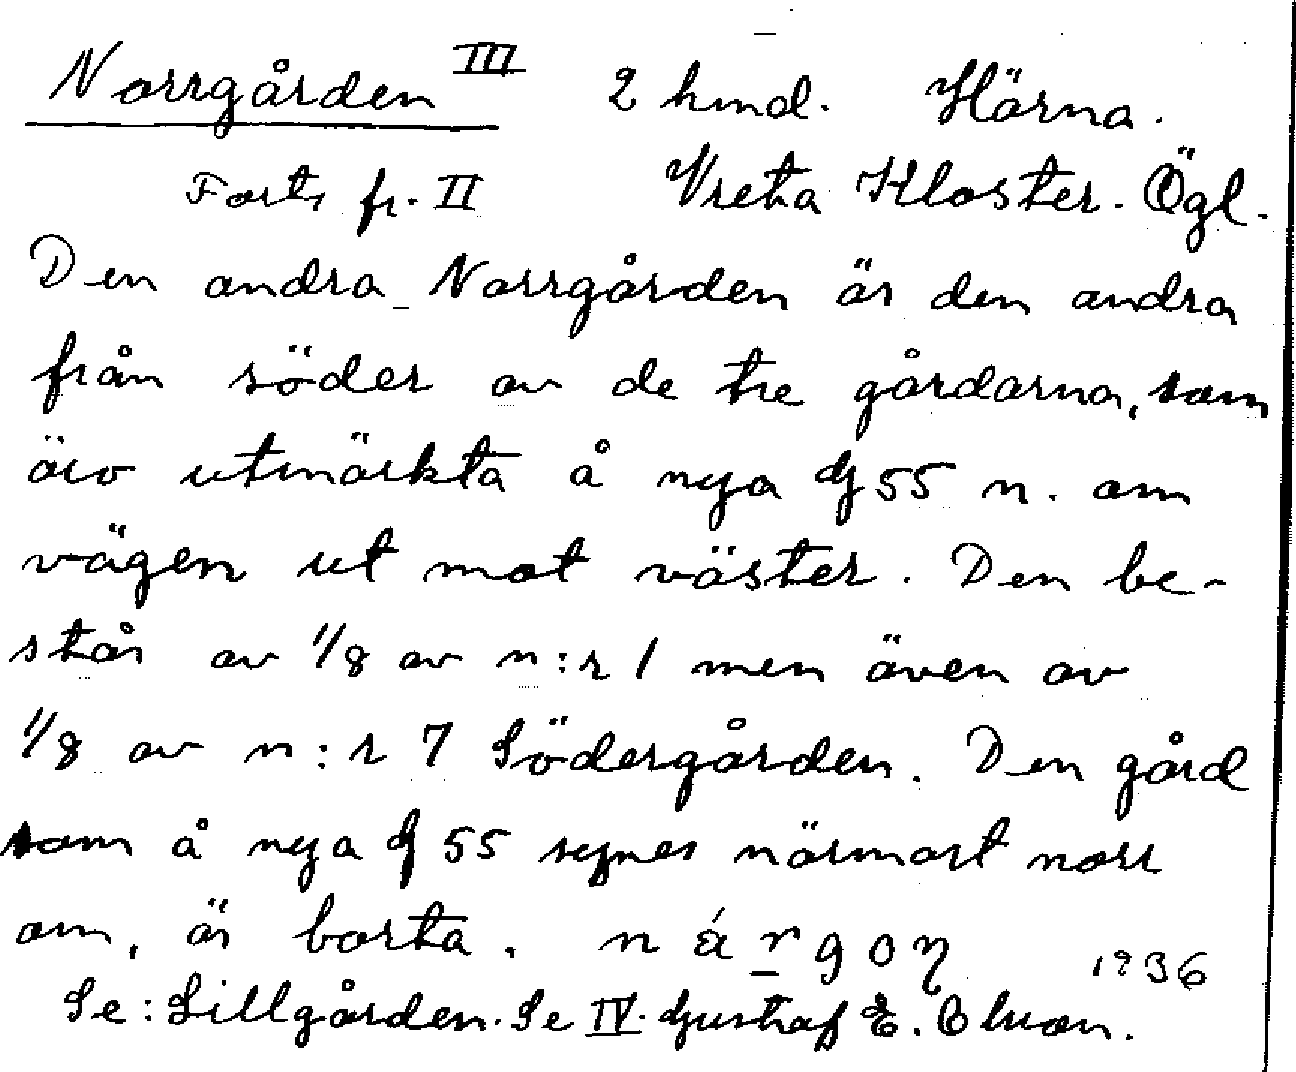 Norrgården III 2 hmd. Härna.
Forts fr. II Vreta Kloster. Ögl.
Den andra Norrgården är den andra
från söder av de tre gårdarna, som
äro utmärkta å nya G 55 n. om
vägen ut mot väster. Den be-
står av 1/8 av n:r 1 men även av
1/8 av n:r 7 Södergården. Den gård
som å nya G 55 synes närmast norr
om, är borta. n á r g o n 1936
Se: Lillgården. Se IV. Gustaf E.